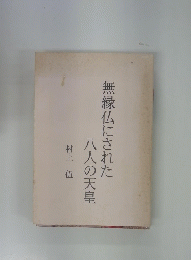 無縁仏にされた
八人の天皇
村